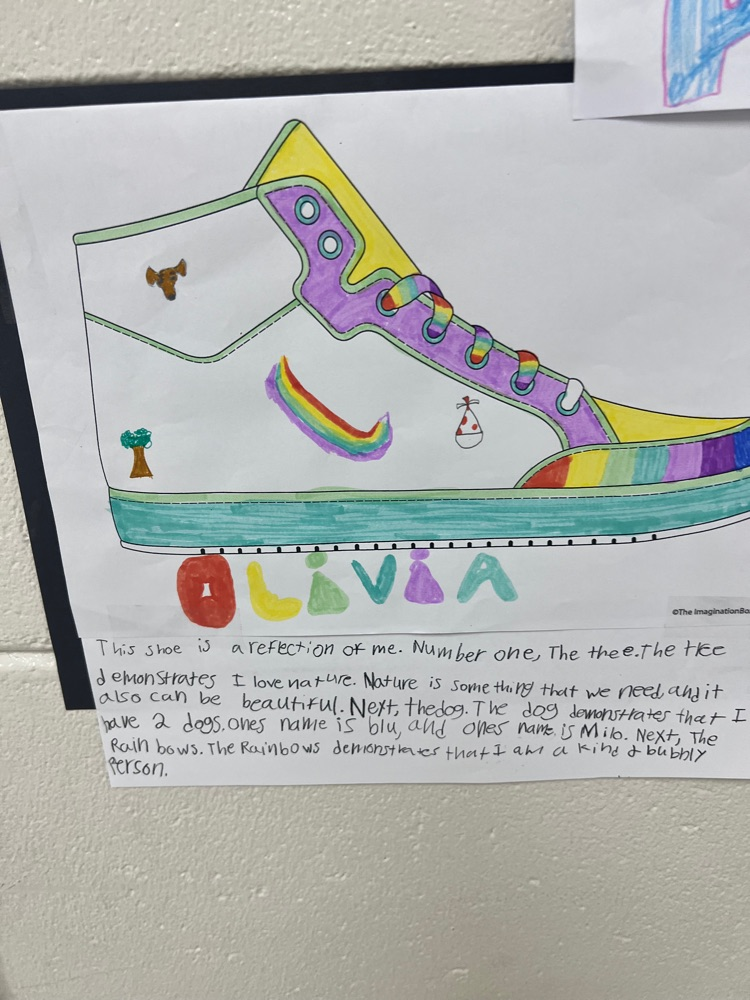 OLiViA
©The ImaginationBo
This shoe is a reflection of me. Number one, The thee. The tree
demonstrates I love nature. Nature is something that we need, and it
also can be beautiful. Next, the dog. The dog demonstrates that I
have 2 dogs. ones name is blu, and ones name is Milo. Next, The
Rainbows. The Rainbows demonstrates that I am a kind & bubbly
Person.